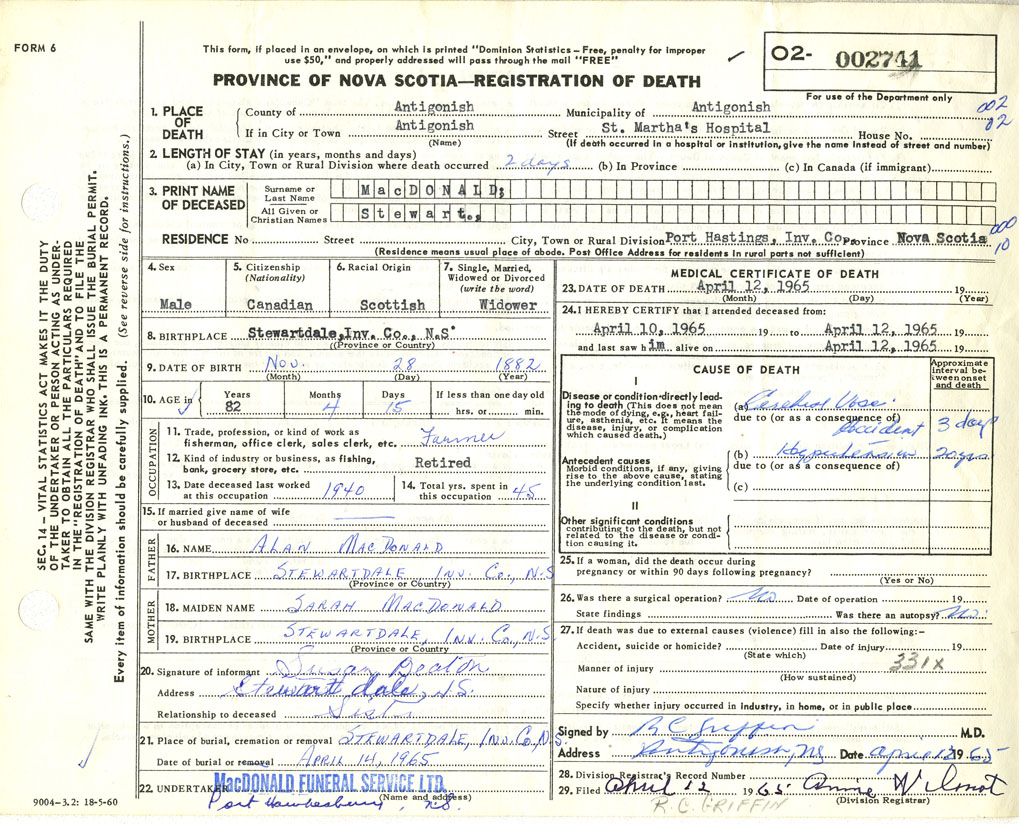 FORM 6
This form, if placed in an envelope, on which is printed "Dominion Statistics – Free, penalty for improper
use $50," and properly addressed will pass through the mail "FREE"
PROVINCE OF NOVA SCOTIA—REGISTRATION OF DEATH
O2- 002741
For use of the Department only
002
02
1. PLACE OF DEATH
County of Antigonish Municipality of Antigonish
If in City or Town Antigonish Street St. Martha's Hospital House No.
(Name) (If death occurred in a hospital or institution, give the name instead of street and number)
2. LENGTH OF STAY (in years, months and days)
(a) In City, Town or Rural Division where death occurred 2 days (b) In Province (c) In Canada (if immigrant)
3. PRINT NAME OF DECEASED
Surname or Last Name MacDONALD;
All Given or Christian Names Stewart.,
000
10
RESIDENCE No Street City, Town or Rural Division Port Hastings, Inv. Co Province Nova Scotia
(Residence means usual place of abode. Post Office Address for residents in rural parts not sufficient)
4. Sex Male
5. Citizenship (Nationality) Canadian
6. Racial Origin Scottish
7. Single, Married, Widowed or Divorced (write the word) Widower
8. BIRTHPLACE Stewartdale, Inv. Co., N.S.
((Province or Country)
9. DATE OF BIRTH Nov. 28 1882
(Month) (Day) (Year)
10. AGE in Years 82 Months 4 Days 15 If less than one day old hrs. or min.
OCCUPATION
11. Trade, profession, or kind of work as fisherman, office clerk, sales clerk, etc. Farmer
12. Kind of industry or business, as fishing, bank, grocery store, etc. Retired
13. Date deceased last worked at this occupation 1940
14. Total yrs. spent in this occupation 45
15. If married give name of wife or husband of deceased
FATHER
16. NAME ALAN MACDONALD
17. BIRTHPLACE STEWARTDALE INV. CO., N.S
(Province or Country)
MOTHER
18. MAIDEN NAME SARAH MACDONALD
19. BIRTHPLACE STEWARTDALE, INV. CO, N.S.
(Province or Country)
20. Signature of informant Susan Beaton
Address Stewartdale, N.S.
Relationship to deceased Sister
21. Place of burial, cremation or removal STEWARTDALE, INV. CO, N.S.
Date of burial or removal APRIL 14, 1965
22. UNDERTAKER MacDONALD FUNERAL SERVICE LTD.
(Name and address)
Port Hawkesbury, N.S.
9004–3.2: 18-5-60
MEDICAL CERTIFICATE OF DEATH
23. DATE OF DEATH April 12, 1965 19
(Month) (Day) (Year)
24. I HEREBY CERTIFY that I attended deceased from:
April 10, 1965 19 to April 12, 1965 19
and last saw him alive on April 12, 1965 19
CAUSE OF DEATH
Approximate interval between onset and death
I
Disease or condition directly leading to death (This does not mean the mode of dying, e.g., heart failure, asthenia, etc. It means the disease, injury, or complication which caused death.)
(a) Cerebral Vasc.
due to (or as a consequence of)
Accident 3 days
Antecedent causes
Morbid conditions, if any, giving rise to the above cause, stating the underlying condition last.
(b) Hypertension 20 yrs.
due to (or as a consequence of)
(c)
II
Other significant conditions
contributing to the death, but not related to the disease or condition causing it.
25. If a woman, did the death occur during pregnancy or within 90 days following pregnancy?
(Yes or No)
26. Was there a surgical operation? No Date of operation 19
State findings Was there an autopsy? No.
27. If death was due to external causes (violence) fill in also the following:–
Accident, suicide or homicide? Date of injury 19
(State which)
331X
Manner of injury
(How sustained)
Nature of injury
Specify whether injury occurred in industry, in home, or in public place
Signed by R C Griffin M.D.
Address Antigonish, NS Date April 12 1965
28. Division Registrar's Record Number
29. Filed April 12 1965 Annie Wilmot
(Division Registrar)
R. C. GRIFFIN
SEC. 14 – VITAL STATISTICS ACT MAKES IT THE DUTY
OF THE UNDERTAKER OR PERSON ACTING AS UNDER-
TAKER TO OBTAIN ALL THE PARTICULARS REQUIRED
IN THE "REGISTRATION OF DEATH" AND TO FILE THE
SAME WITH THE DIVISION REGISTRAR WHO SHALL ISSUE THE BURIAL PERMIT.
WRITE PLAINLY WITH UNFADING INK. THIS IS A PERMANENT RECORD.
Every item of information should be carefully supplied. (See reverse side for instructions.)